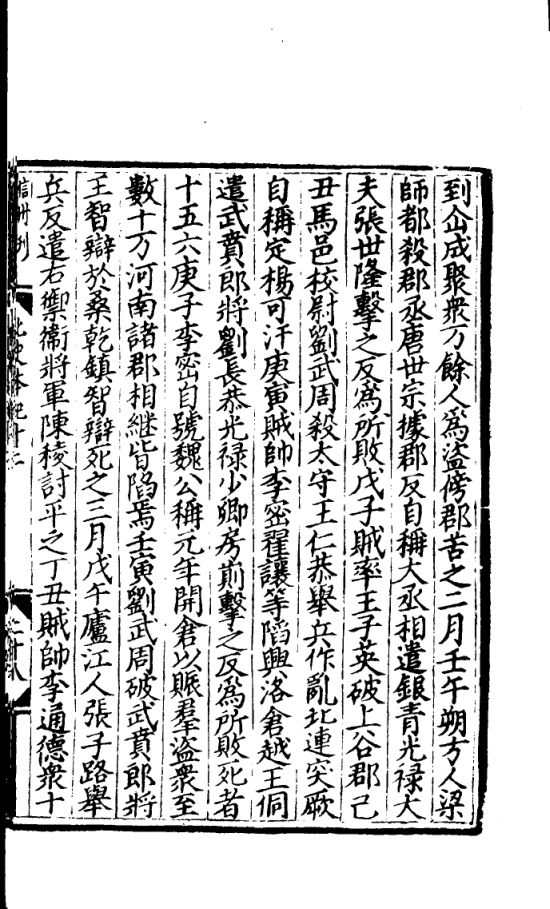 到㐰成聚衆万餘人爲盜傍郡苦之二月壬午朔方人梁
師都殺郡丞唐世宗據郡反自稱大丞相遣銀青光禄大
夫張世隆擊之反爲所敗戊子賊率王子英破上谷郡己
丑馬邑校尉劉武周殺太守王仁恭舉兵作亂北連突厥
自稱定楊可汗庚寅賊帥李密翟讓等陷興洛倉越王侗
遣武賁郎將劉長恭光禄少卿房崱擊之反爲所敗死者
十五六庚子李密自號魏公稱元年開倉以賑羣盜衆至
數十万河南諸郡相継皆陷焉壬寅劉武周破武賁郎將
王智辯於桑乾鎮智辯死之三月戊午廬江人張子路舉
兵反遣右禦衞將軍陳稜討平之丁丑賊帥李通德衆十
信州刊 北史本紀十二